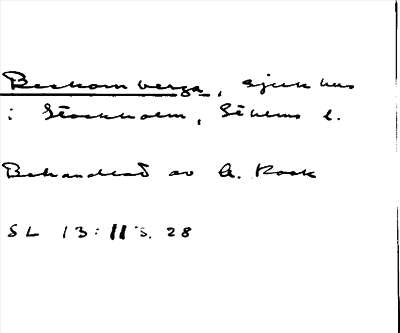 Beckomberga, sjukhus
i Stockholm, Sthlms l.
Behandlad av A. Kock
SL 13:11 s. 28